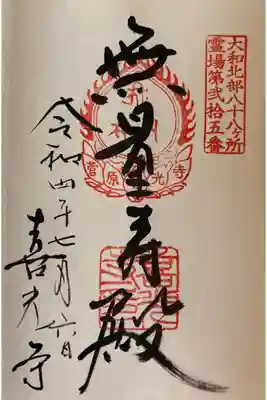 大和北部八十八ヶ所
霊場第弐拾五番
無量寿殿
菅原
光寺
令和四年七月六日
喜光寺